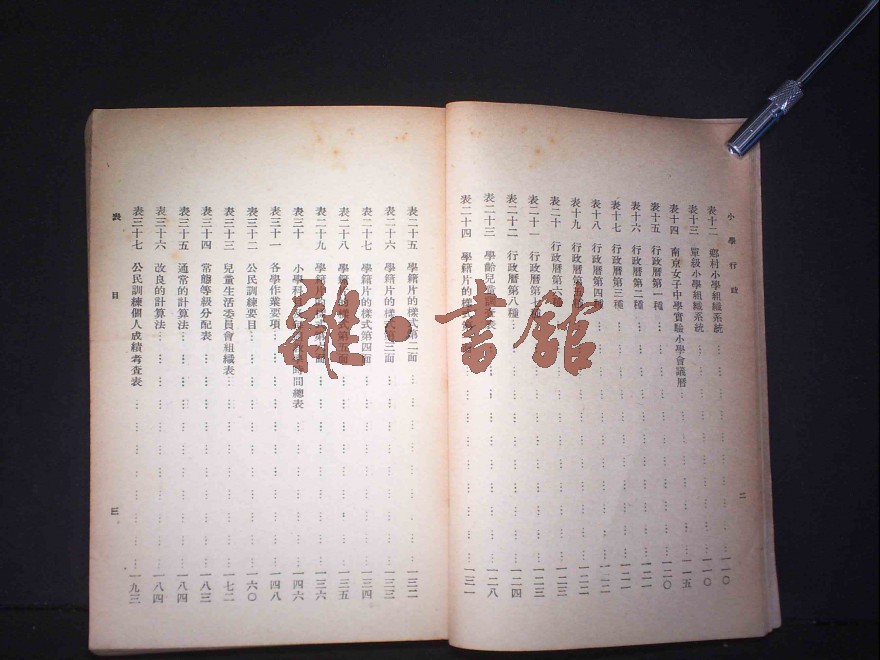 小學行政
表十二 鄉村小學組織系統……一一〇
表十三 單級小學組織系統……一一〇
表十四 南京女子中學實驗小學會議曆……一一五
表十五 行政曆第一種……一二〇
表十六 行政曆第二種……一二一
表十七 行政曆第三種……一二一
表十八 行政曆第四種……一二一
表十九 行政曆第……一二二
表二十 行政曆第六……一二二
表二十一 行政曆第七種……一二三
表二十二 行政曆第八種……一二四
表二十三 學齡兒 調查表……一二八
表二十四 學籍片的樣 第一面……一三一
二
表二十五 學籍片的樣式第二面……一三二
表二十六 學籍片的樣式第三面……一三三
表二十七 學籍片的樣式第四面……一三四
表二十八 學籍片的樣式第五面……一三五
表二十九 學籍片 面……一三六
表三十 小學科目 時間總表……一四六
表三十一 各學作業要項……一四八
表三十二 公民訓練要目……一六〇
表三十三 兒童生活委員會組織表……一七二
表三十四 常態等級分配表……一八三
表三十五 通常的計算法……一八四
表三十六 改良的計算法……一八四
表三十七 公民訓練個人成績考查表……一九三
表目
三
雜·書館